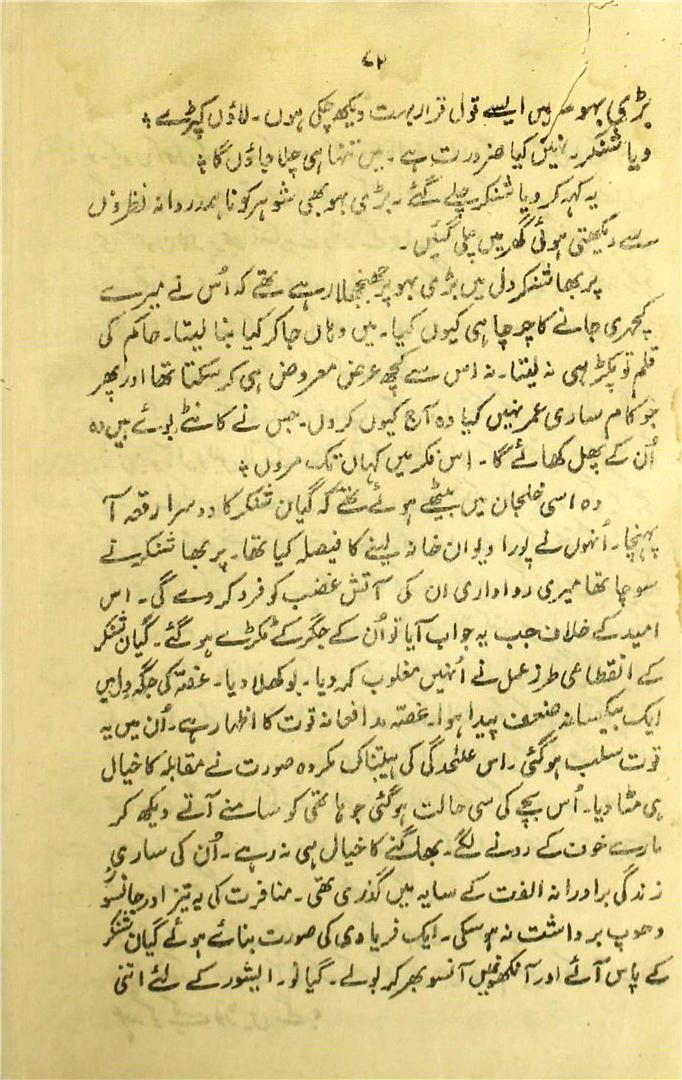 ۷۲
بڑی بہو۔ میں ایسے قول قرار بہت دیکھ چکی ہوں۔ لاؤں کپڑے؟
دیا شنکر۔ نہیں کیا ضرورت ہے۔ میں تنہا ہی چلا جاؤں گا؟
یہ کہہ کر دیا شنکر چلے گئے۔ بڑی بہو بھی شوہر کو نا ہمدردانہ نظروں
سے دیکھتی ہوئی گھر میں چلی گئیں۔
پربھا شنکر دل میں بڑی بہو پر جھنجھلا رہے تھے کہ اُس نے میرے
کچہری جانے کا چرچا ہی کیوں کیا۔ میں وہاں جا کر کیا بنا لیتا۔ حاکم کی
قلم تو پکڑ ہی نہ لیتا۔ نہ اس سے کچھ عرض معروض ہی کر سکتا تھا اور پھر
جو کام ساری عمر نہیں کیا وہ آج کیوں کروں۔ جس نے کانٹے بوئے ہیں وہ
اُن کے پھل کھائے گا۔ اس فکر میں کہاں تک مروں؟
وہ اسی خلجان میں بیٹھے ہوئے تھے کہ گیان شنکر کا دوسرا رقعہ آ
پہنچا۔ اُنہوں نے پورا دیوان خانہ لینے کا فیصلہ کیا تھا۔ پربھا شنکر نے
سوچا تھا میری رواداری ان کی آتش غضب کو فرو کر دے گی۔ اس
امید کے خلاف جب یہ جواب آیا تو اُن کے جگر کے ٹکڑے ہو گئے۔ گیان شنکر
کے انقطاعی طرز عمل نے اُنہیں مغلوب کر دیا۔ بوکھلا دیا۔ غصّہ کی جگہ دل میں
ایک بیکسانہ ضعف پیدا ہوا۔ غصّہ مدافعانہ قوت کا اظہار ہے۔ اُن میں یہ
قوت سلب ہو گئی۔ اس علیٰحدگی کی ہیبتناک مکروہ صورت نے مقابلہ کا خیال
ہی مٹا دیا۔ اُس بچے کی سی حالت ہو گئی جو ہاتھی کو سامنے آتے دیکھ کر
مارے خوف کے رونے لگے۔ بھاگنے کا خیال ہی نہ رہے۔ اُن کی ساری
زندگی برادرانہ الفت کے سایہ میں گذری تھی۔ منافرت کی یہ تیز اور جانسوز
دھوپ برداشت نہ ہو سکی۔ ایک فریادی کی صورت بنائے ہوئے گیان شنکر
کے پاس آئے اور آنکھوں میں آنسو بھر کر بولے۔ گیانو۔ ایشور کے لئے اتنی